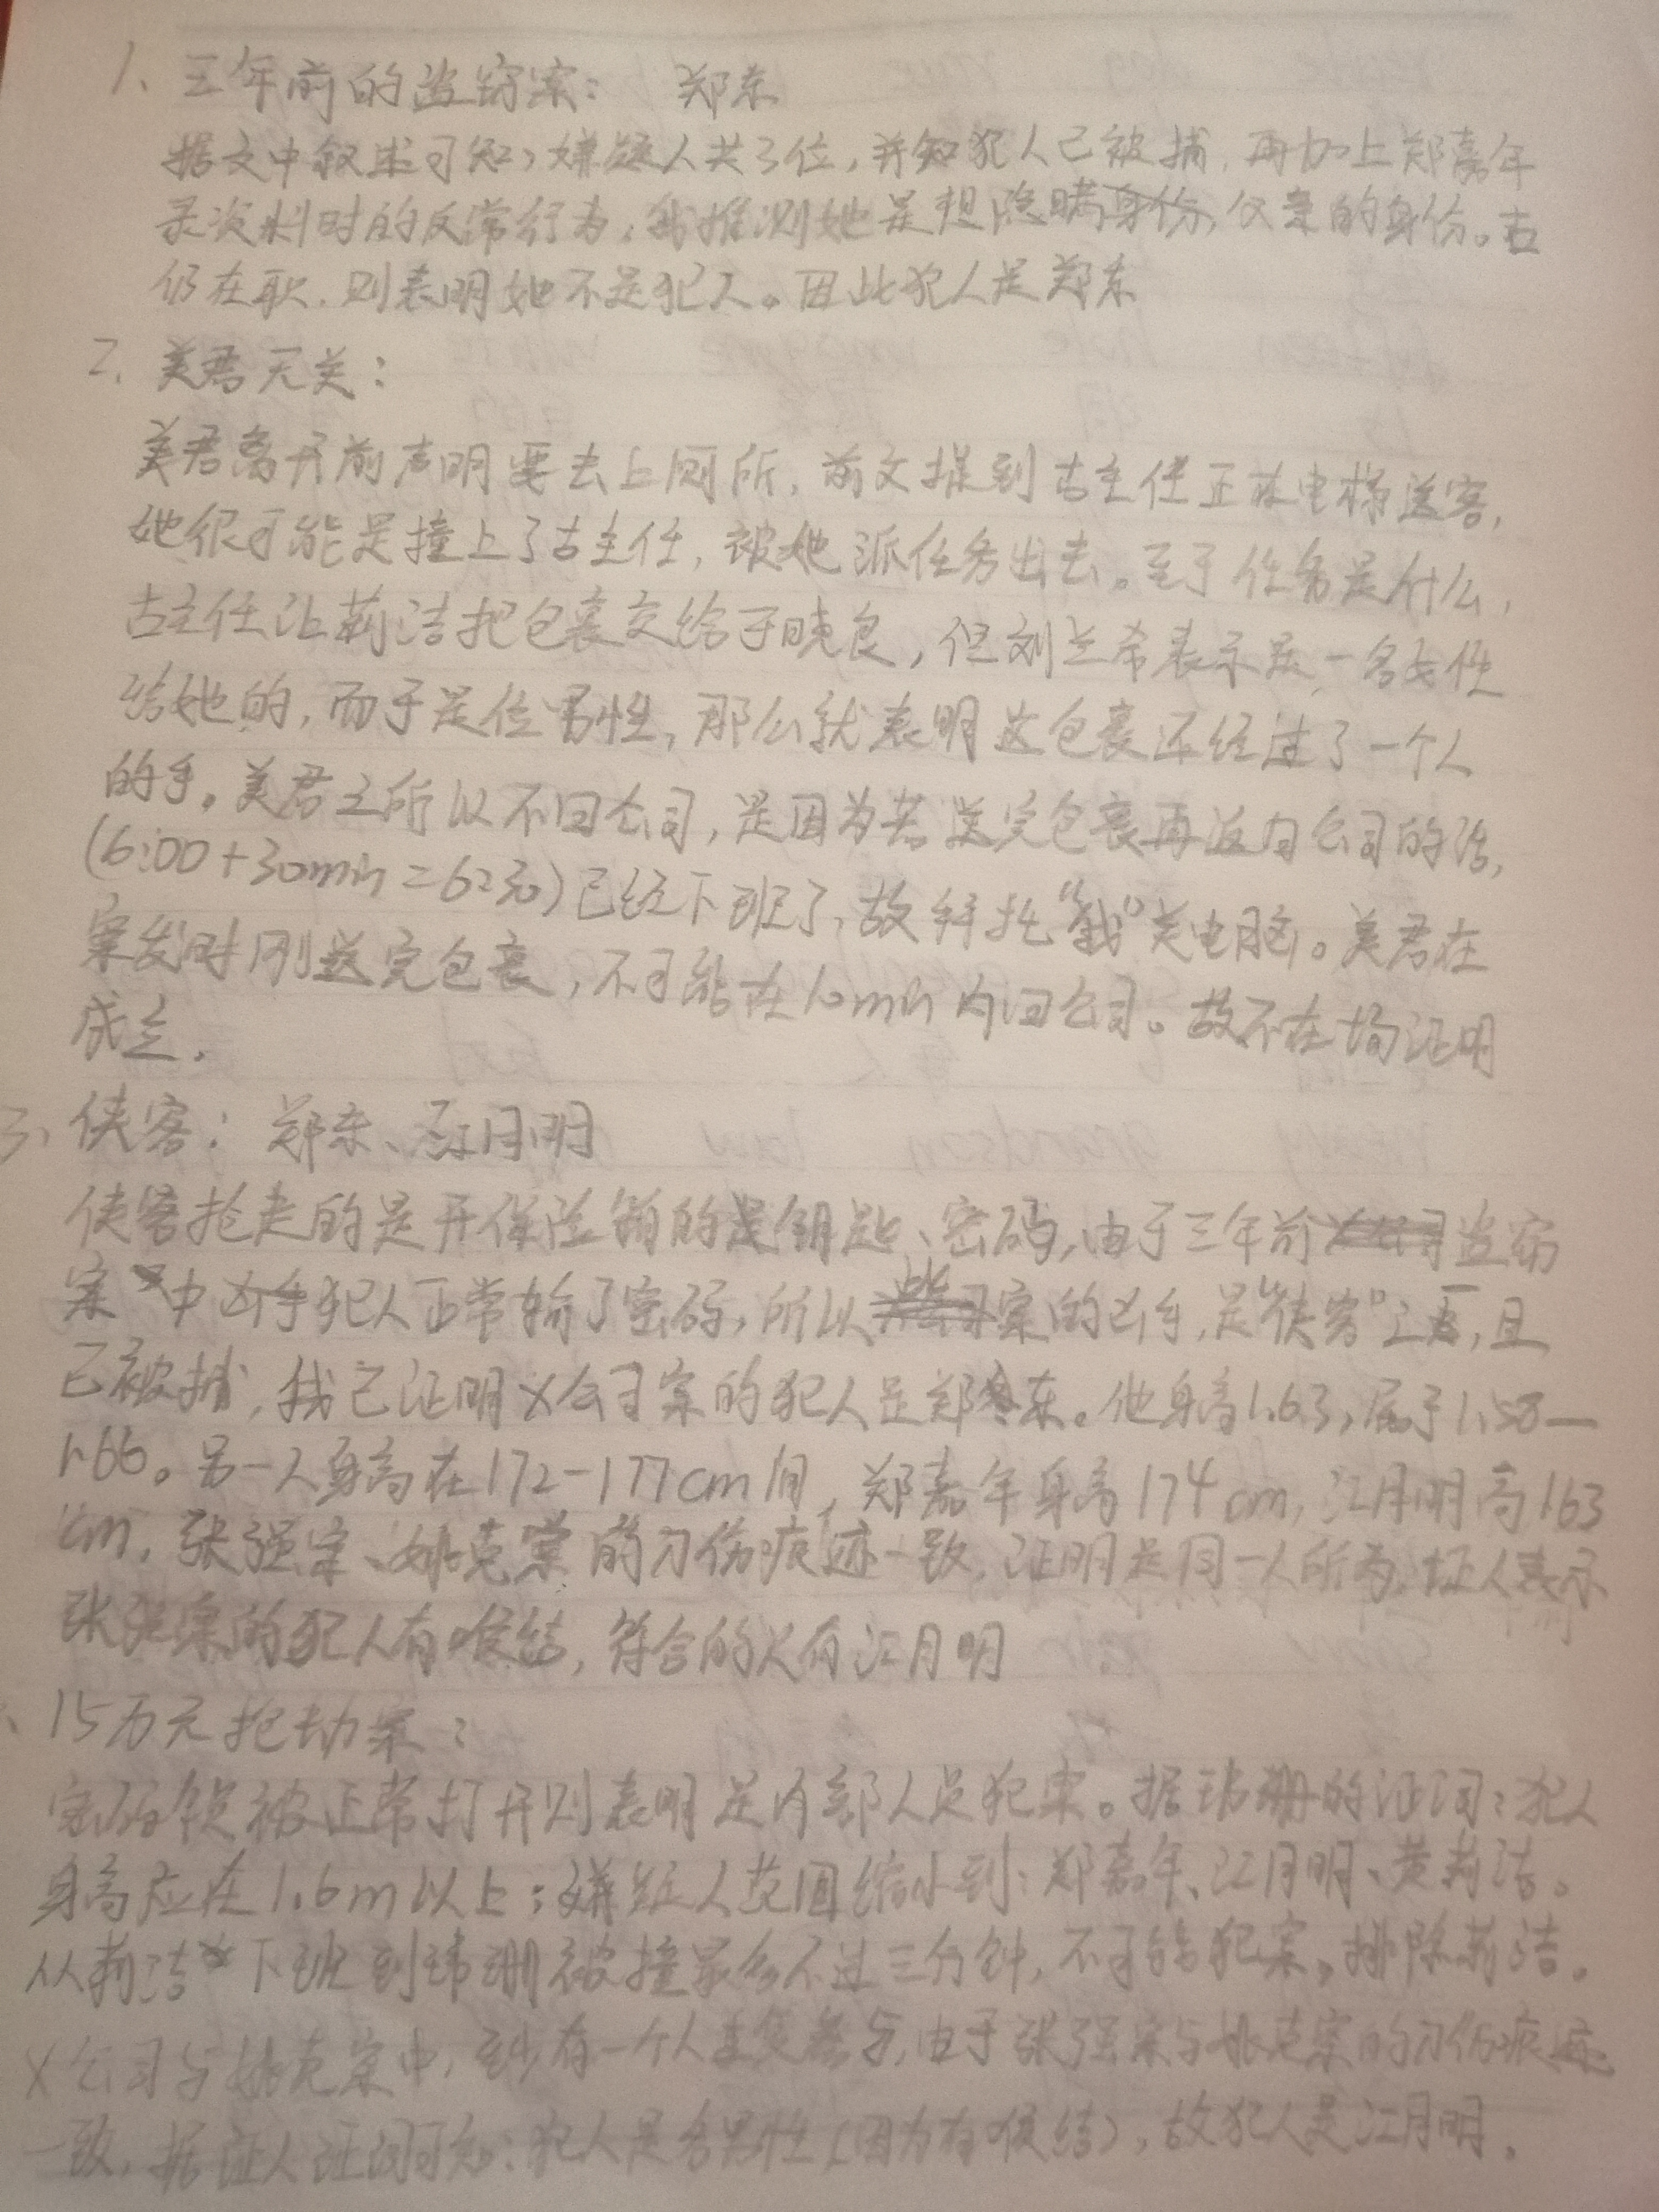 1、三年前的盗窃案： 郑东
据文中叙述可知，嫌疑人共3位，并知犯人已被捕，再加上郑嘉年
录资料时的反常行为，我推测她是想隐瞒身份，父亲的身份。古
仍在职，则表明她不是犯人。因此犯人是郑东
2、美君无关：
美君离开前声明要去上厕所，前文提到古主任正在电梯送客，
她很可能是撞上了古主任，被她派任务出去。至于任务是什么，
古主任让莉洁把包裹交给于晓良，但刘兰希表示是一名女性
给她的，而于是位男性，那么就表明这包裹还经过了一个人
的手。美君之所以不回公司，是因为若送完包裹再返回公司的话，
(6:00+30min=6:30)已经下班了，故拜托“我”关电脑。美君在
案发时刚送完包裹，不可能在10min内回公司。故不在场证明
成立。
3、侠客：郑东、江月明
侠客抢走的是开保险箱的是钥匙、密码，由于三年前盗窃
案中凶手犯人正常输了密码，所以此案的凶手，是“侠客”之一，且
已被捕，我已证明X公司案的犯人是郑东。他身高1.63，属于1.58—
1.66。另一人身高在172-177cm间，郑嘉年身高174cm，江月明高163
cm，张强案、姚克案的刀伤痕迹一致，证明是同一人所为，证人表示
张强案的犯人有喉结，符合的人有江月明
、15万元抢劫案：
密码锁被正常打开则表明是内部人员犯案。据玮珊的证词：犯人
身高应在1.6m以上；嫌疑人范围缩小到：郑嘉年、江月明、黄莉洁。
从莉洁下班到玮珊被撞最多不过三分钟，不可能犯案，排除莉洁。
X公司与姚克案中，至少有一个人重复参与，由于张强案与姚克案的刀伤痕迹
一致，据证人证词可知：犯人是名男性（因为有喉结），故犯人是江月明。